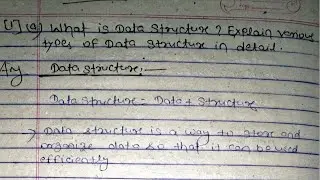 [17] (a) What is Data Structure? Explain various
types of Data Structure in detail.
Ans Data Structure:-
Data Structure = Data + Structure
→ Data structure is a way to store and
organize data so that it can be used
efficiently